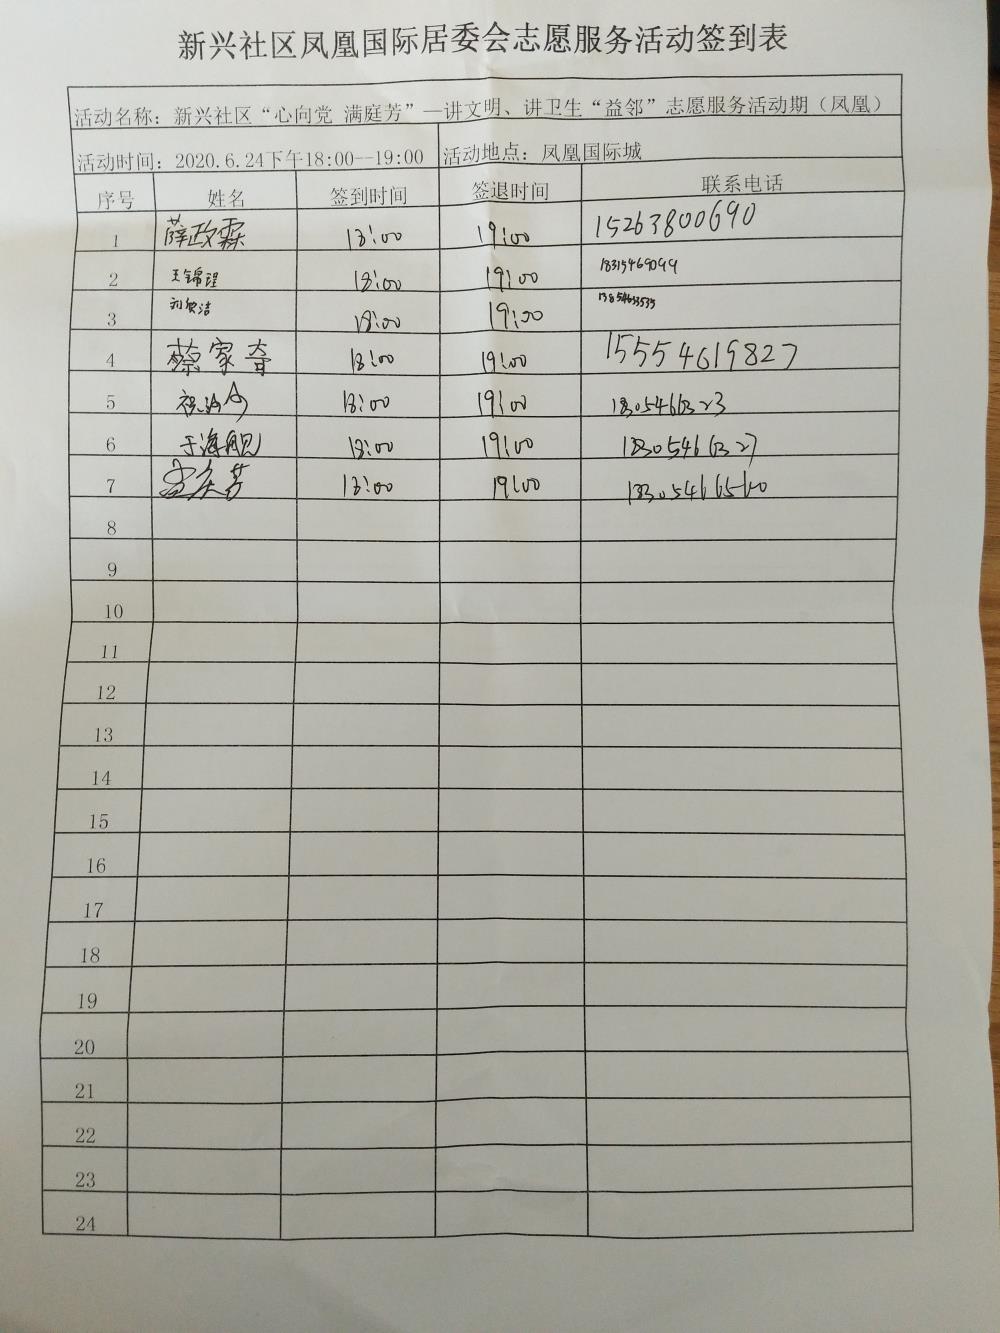 新兴社区凤凰国际居委会志愿服务活动签到表
活动名称：新兴社区“心向党 满庭芳”—讲文明、讲卫生“益邻”志愿服务活动期（凤凰）
活动时间：2020.6.24下午18:00--19:00 活动地点：凤凰国际城
序号 姓名 签到时间 签退时间 联系电话
1 薛政霖 18:00 19:00 15263800690
2 王锦程 18:00 19:00 18315469099
3 刘 洁 18:00 19:00 13854633535
4 蔡家奇 18:00 19:00 15554619827
5 祝 18:00 19:00
6 于海 18:00 19:00
7 孟庆芳 18:00 19:00
8
9
10
11
12
13
14
15
16
17
18
19
20
21
22
23
24